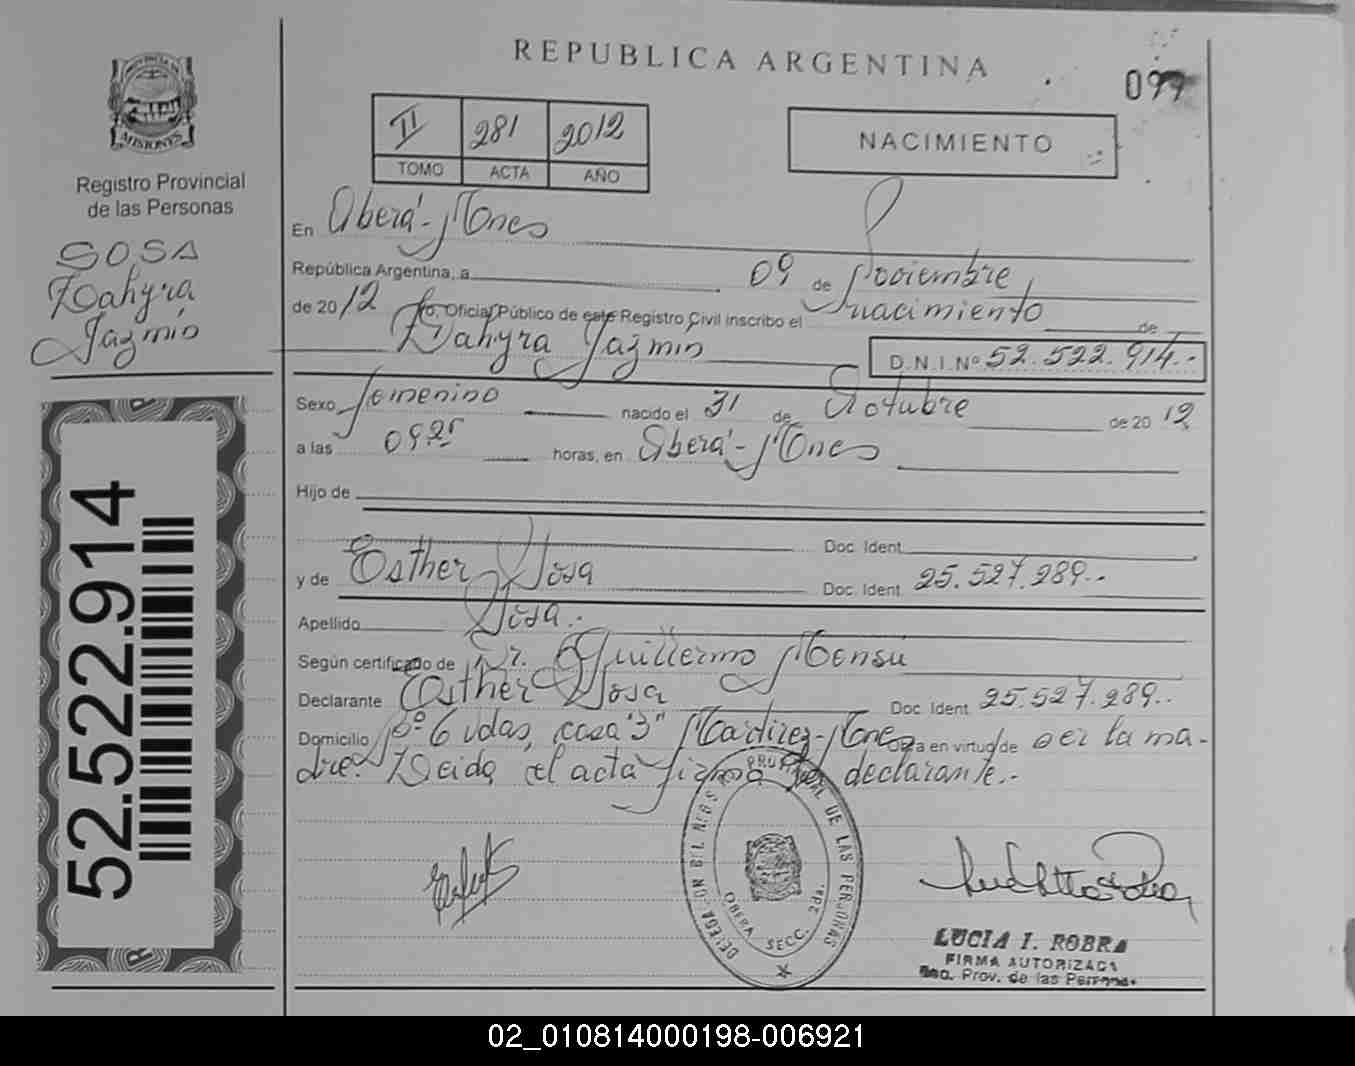 REPUBLICA ARGENTINA
099
PROVINCIA DE MISIONES
Registro Provincial
de las Personas
SOSA
Dahyra
Jazmin
52.522.914
II 281 2012
TOMO ACTA AÑO
NACIMIENTO
En Oberá-Mnes
República Argentina, a 09 de Noviembre
de 2012 Yo, Oficial Público de este Registro Civil inscribo el nacimiento de
Dahyra Jazmin D.N.I. Nº 52.522.914.-
Sexo femenino nacido el 31 de Octubre de 2012
a las 09,25 horas, en Oberá-Mnes
Hijo de
Doc. Ident.
y de Esther Sosa Doc. Ident. 25.527.289.-
Apellido Sosa.-
Según certificado de Dr. Guillermo Mensu
Declarante Esther Sosa Doc. Ident. 25.527.289.-
Domicilio Bº 6 vdas, casa "3" Martires-Mnes Obra en virtud de ser la ma-
dre. Leida el acta firma la declarante.-
DELEGACION DEL REGISTRO PROVINCIAL DE LAS PERSONAS
OBERA SECC. 2da.
LUCIA I. ROBRA
FIRMA AUTORIZADA
Reg. Prov. de las Personas
02_010814000198-006921